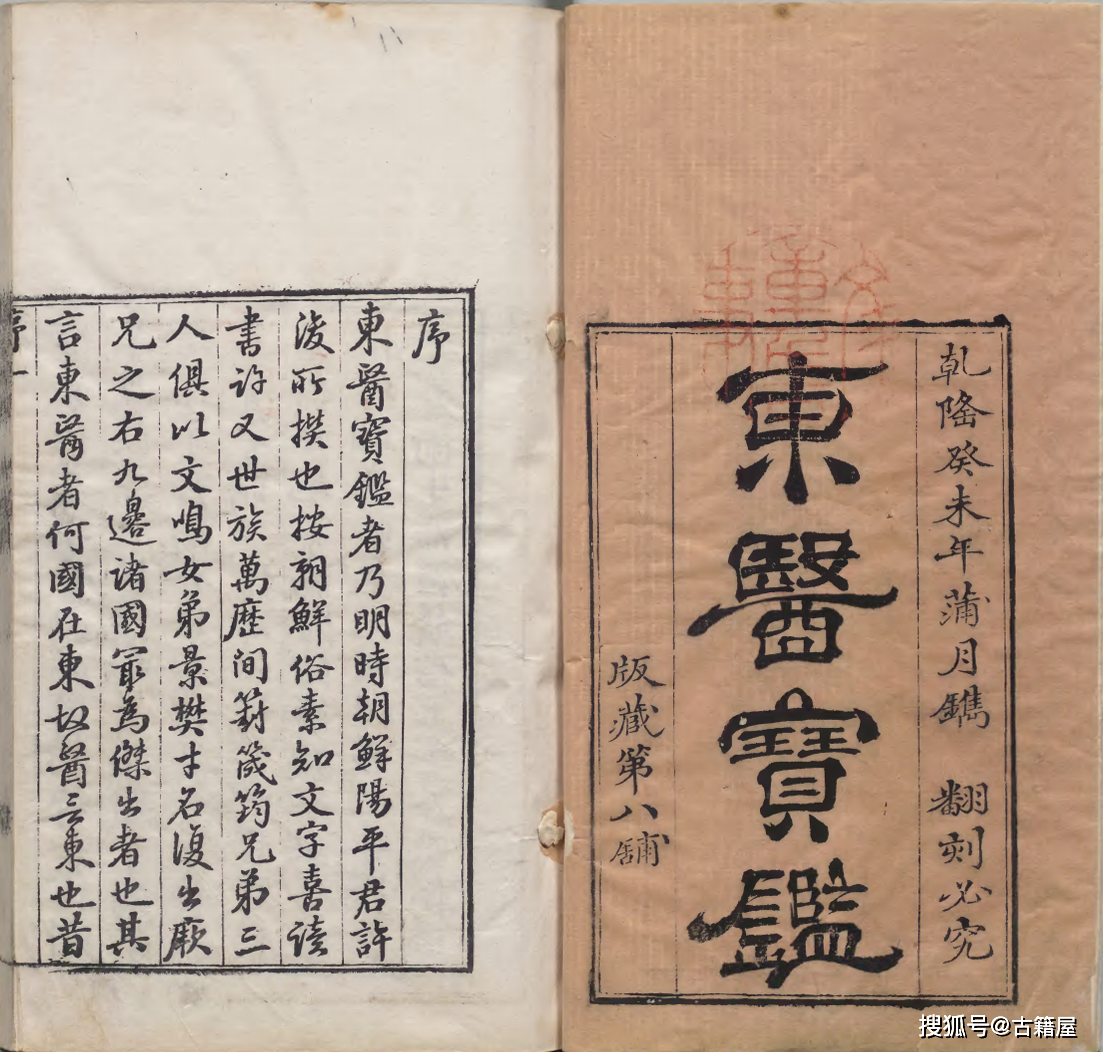 乾隆癸未年蒲月鐫 翻刻必究
東醫寶鑑
版藏第八鋪
序
東醫寶鑑者乃明時朝鮮陽平君許
浚所撰也按朝鮮俗素知文字喜读
書许又世族萬歷间葑筬筠兄弟三
人俱以文鳴女弟景樊才名復出厥
兄之右九邊诸國冣為傑出者也其
言東醫者何國在東故醫言東也昔
序一
搜狐号@古籍屋